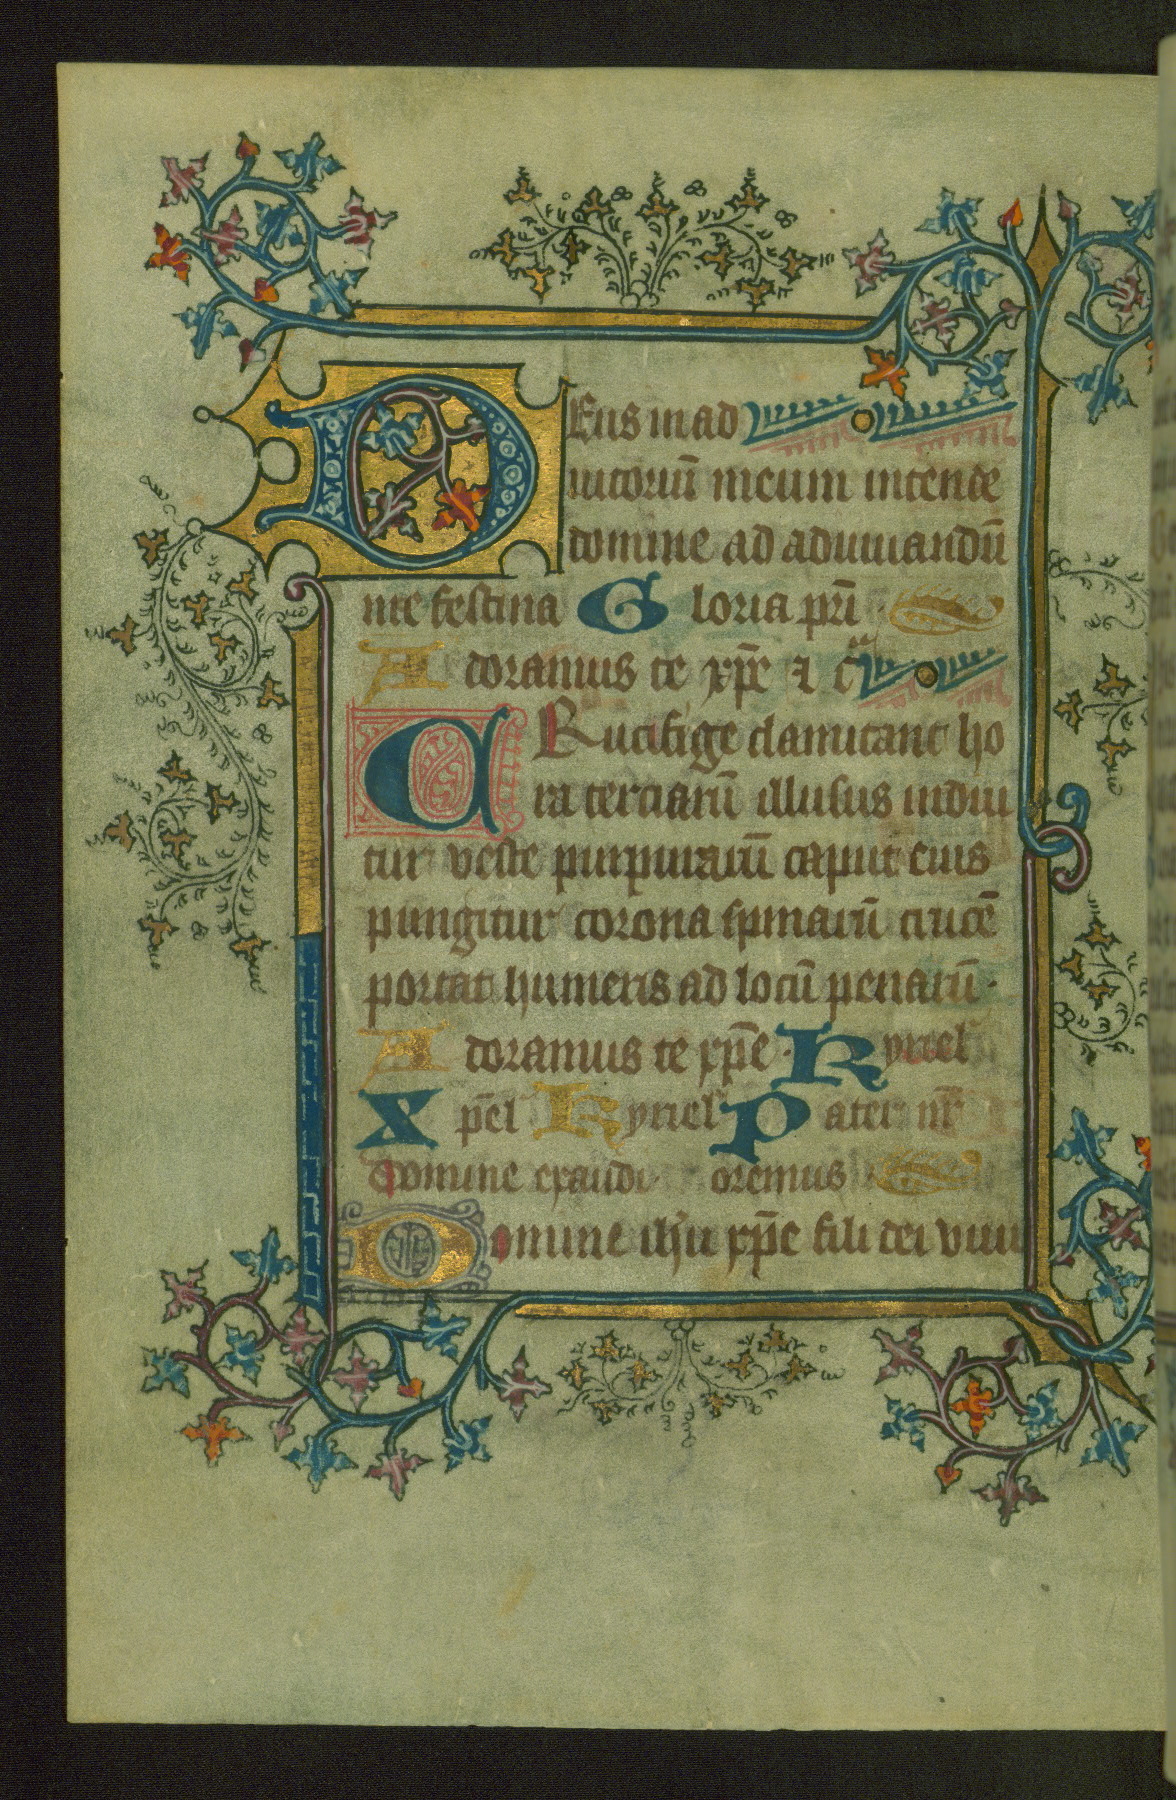 DEus in ad
iutoriū meum intende
domine ad adiuuandū
me festina Gloria pr̄i
Adoramus te xp̄e ⁊ cͣ
CRucifige clamitant ho
ra terciarū illusus indui
tur veste purpurarū caput eius
pungitur corona spinarū crucē
portat humeris ad locū penarū ·
Adoramus te xp̄e · Kyriel
Xp̄el Kyriel Pater nr̄
Domine exaudi · oremus
Domine ih̄u xp̄e fili dei viui